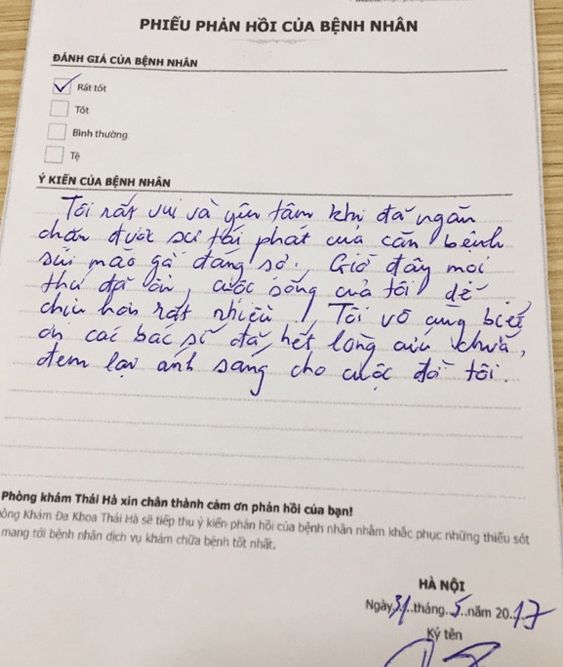 PHIẾU PHẢN HỒI CỦA BỆNH NHÂN
ĐÁNH GIÁ CỦA BỆNH NHÂN
Rất tốt
Tốt
Bình thường
Tệ
Ý KIẾN CỦA BỆNH NHÂN
Tôi rất vui và yên tâm khi đã ngăn
chặn được sự tái phát của căn bệnh
sùi mào gà đáng sợ. Giờ đây mọi
thứ đã ổn, cuộc sống của tôi dễ
chịu hơn rất nhiều. Tôi vô cùng biết
ơn các bác sĩ đã hết lòng cứu chữa,
đem lại ánh sáng cho cuộc đời tôi.
Phòng khám Thái Hà xin chân thành cảm ơn phản hồi của bạn!
Phòng Khám Đa Khoa Thái Hà sẽ tiếp thu ý kiến phản hồi của bệnh nhân nhằm khắc phục những thiếu sót
mang tới bệnh nhân dịch vụ khám chữa bệnh tốt nhất.
HÀ NỘI
Ngày 31 tháng 5 năm 2017
Ký tên